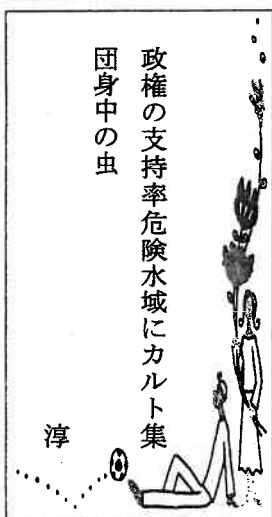 政権の支持率危険水域にカルト集
団身中の虫
淳